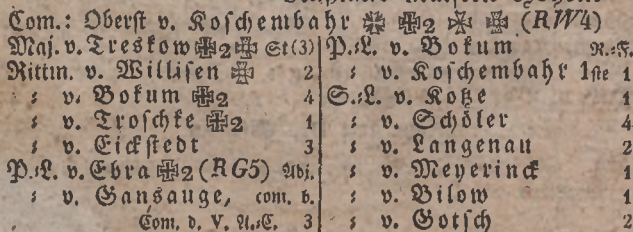 Com.: Oberst v. Koschembahr ✠ ✠2 ✠ ✠ (RW4)
Maj. v. Treskow ✠2✠ St(3)
Rittm. v. Willisen ✠ 2
: v. Bokum ✠2 4
: v. Troschke ✠2 1
: v. Eickstedt 3
P.:L. v. Ebra ✠2 (RG5) Adj.
: v. Gansauge, com. b.
Com. d. V. A.:C. 3
P.:L. v. Bokum R.:F.
: v. Koschembahr 1ste 1
S.:L. v. Kotze 1
: v. Schöler 4
: v. Langenau 2
: v. Meyerinck 1
: v. Bilow 1
: v. Gotsch 2